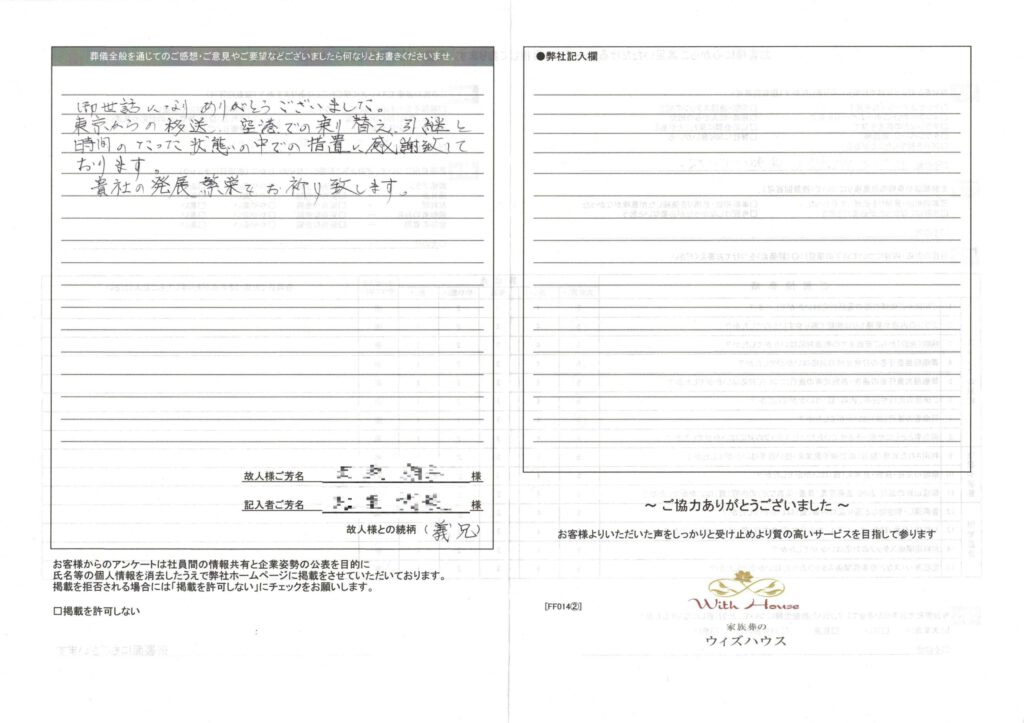 葬儀全般を通じてのご感想・ご意見やご要望などございましたら何なりとお書きくださいませ。
御世話になり ありがとうございました。
東京からの移送、空港での乗り替え、引継と
時間のたった状態の中での措置に感謝致して
おります。
貴社の発展 繁栄をお祈り致します。
故人様ご芳名 様
記入者ご芳名 様
故人様との続柄 (義兄)
お客様からのアンケートは社員間の情報共有と企業姿勢の公表を目的に
氏名等の個人情報を消去したうえで弊社ホームページに掲載をさせていただいております。
掲載を拒否される場合には「掲載を許可しない」にチェックをお願いします。
□掲載を許可しない
●弊社記入欄
～ ご協力ありがとうございました ～
お客様よりいただいた声をしっかりと受け止めより質の高いサービスを目指して参ります
[FF014②]
With House
家族葬の
ウィズハウス